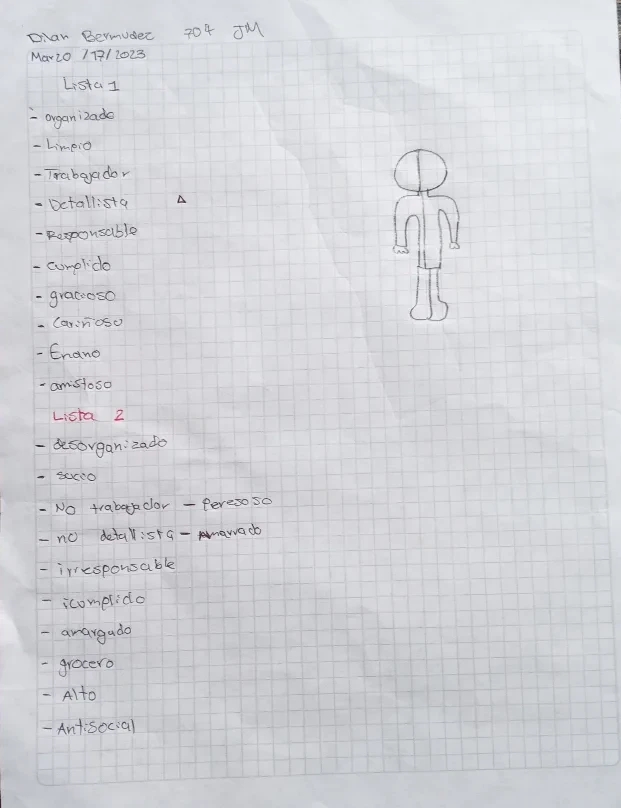 Dilan Bermudez 704 JM
Marzo /17/2023
Lista 1
- organizado
- Limpio
- Trabajador
- Detallista
- Responsable
- cumplido
- gracioso
- Cariñoso
- Enano
- amistoso
Lista 2
- desorganizado
- sucio
- No trabajador - Peresoso
- no detallista - Amarrado
- irresponsable
- icomplido
- amargado
- grocero
- Alto
- Antisocial